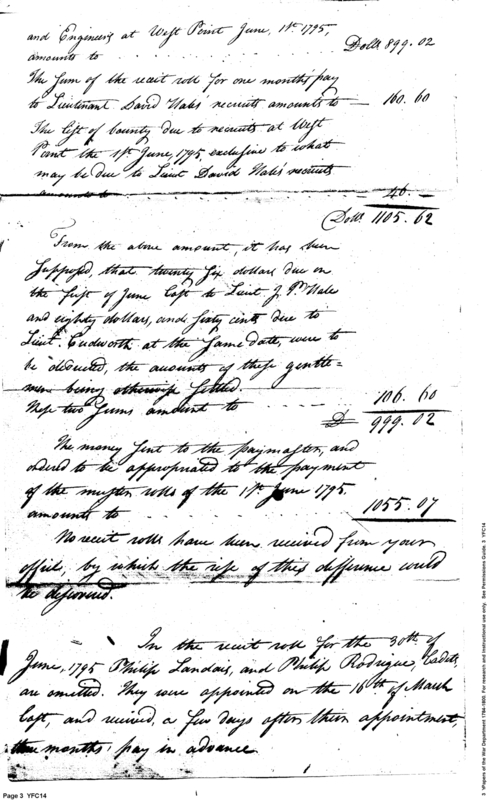 and Engineers at West Point June, 1st 1795,
amounts to . . . . . . Dolls 899. 02
The sum of the receit roll for one months pay
to Lieutenant David Hales' recruits amounts to — 160. 60
The list of bounty due to recruits at West
Point the 1st June, 1795, exclusive to what
may be due to Lieut David Hale's recruits
amounts to 46. —
Dolls. 1105. 62
From the above amount, it has been
supposed, that twenty six dollars due on
the first of June last to Lieut J. P. Hale
and eighty dollars, and sixty cents due to
Lieut. Cudworth at the same date, were to
be deducted, the amounts of these gentle=
men being otherwise settled.
These two sums amount to 106. 60
D 999. 02
The money sent to the paymaster, and
ordered to be appropriated to the payment
of the muster rolls of the 1st June 1795.
amounts to 1055. 07
No receit rolls have been received from your
office, by which the rise of this difference could
be discovered.
In the receit roll for the 30th of
June, 1795 Philip Landais, and Philip Rodrigue, Cadets,
are omitted. They were appointed on the 16th of March
last, and received, a few days after their appointment,
three months' pay in advance.
Page 3 YFC14
3 \Papers of the War Department 1784-1800. For research and instructional use only. See Permissions Guide. 3 YFC14